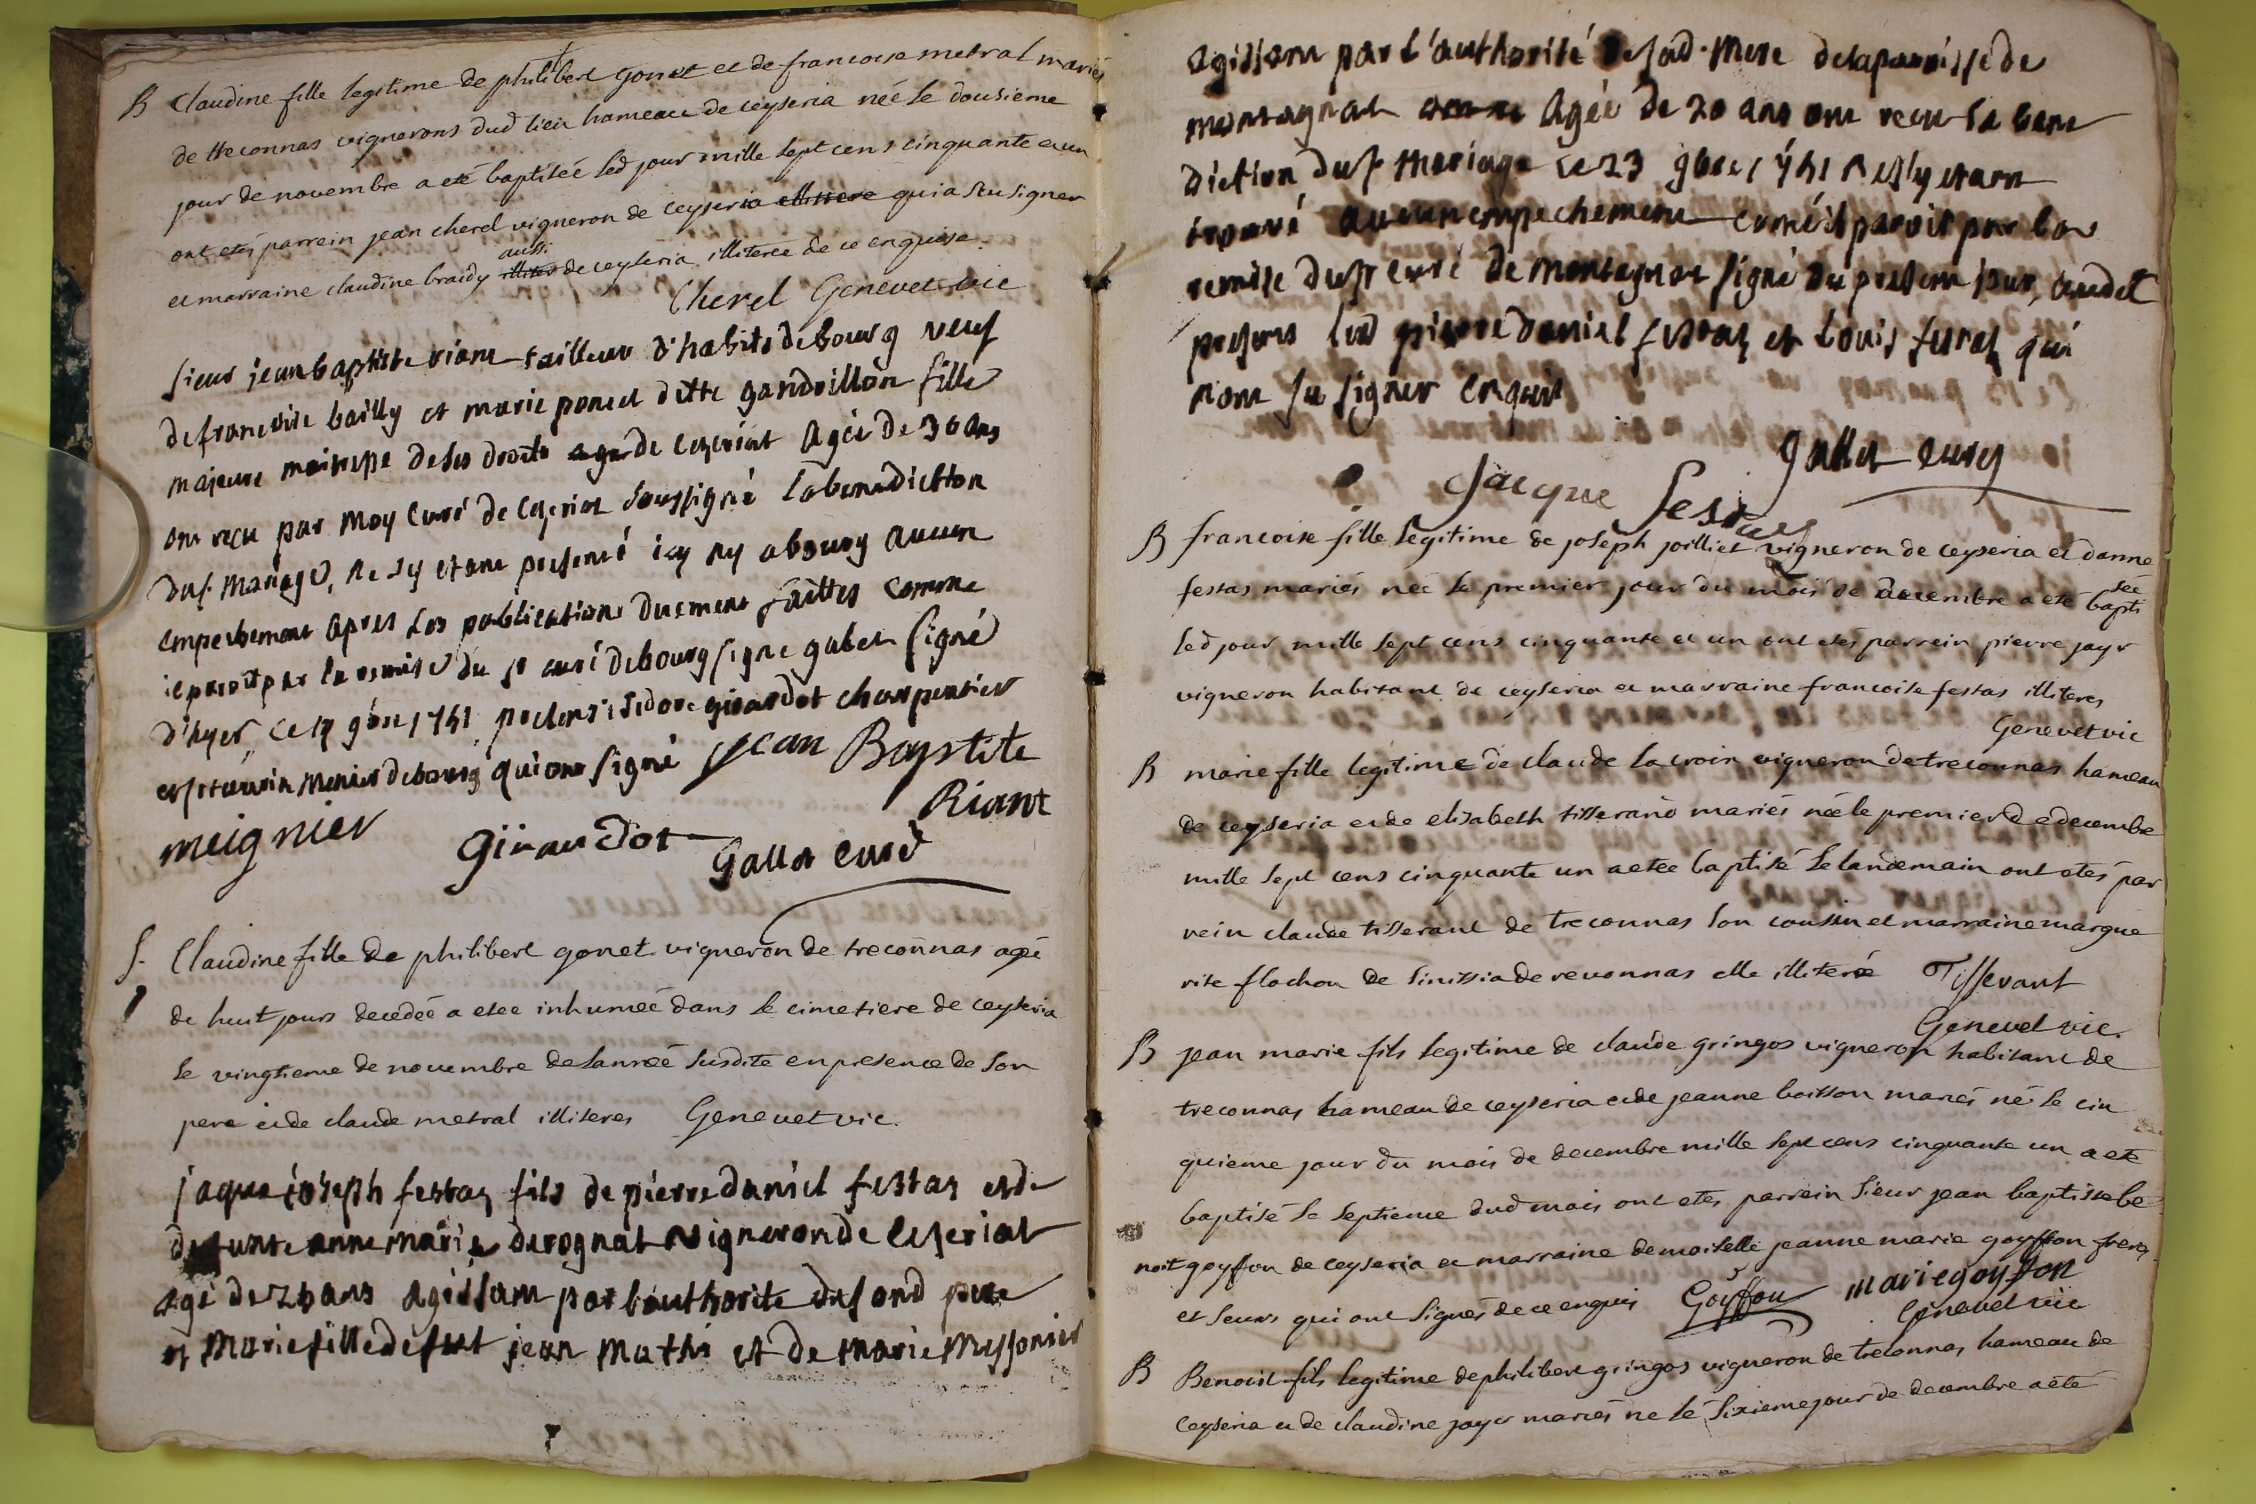 B Claudine fille legitime de philibert gonet et de francoise metral mariés
de treconnas vignerons dud lieu hameau de ceyseria née le dousieme
jour de novembre a eté baptiséé led jour mille sept cens cinquante et un
ont etés parrein jean cherel vigneron de ceyseria qui a sçu signer
aussi
et marraine claudine braidy de ceyseria illiterée de ce enquise.
Cherel Genevet vic
sieur jean baptiste riant tailleur d'habits de bourg veuf
de francoise bailly et marie poncet ditte gandrillon fille
majeure maitresse de ses droits de ceseriat agée de 36 ans
ont reçu par moy curé de ceseriat soussigné la benediction
du st mariage, ne sy etant presenté icy ny a bourg aucun
empechement apres les publications duement faittes comme
il paroit par la remise du sr curé de bourg signe gabet signé
d'hyer, ce 9bre 1751 presens isidore girardot charpentier
et menier de bourg qui ont signé jean Baptite
Riant
meignier Girardot Gallet curé
S. Claudine fille de philibert gonet vigneron de treconnas agée
de huit jours decedéé a etee inhuméé dans le cimetiere de ceyseria
le vingtieme de novembre de lannéé susdite en presence de son
pere et de claude metral illiteres Genevet vic.
jaque joseph festaz fils de pierre daniel festaz et de
defunte anne marie derognat vigneron de ceseriat
agé de 26 ans agissant par l'authorite de sond pere
et Marie fille de fut jean mathi et de marie meyssonier
agissant par l'authorité de sad. mere de la parroisse de
montagnat agée de 20 ans ont recu la bene
diction du st mariage ce 23 9bre 1751 ne s'y etant
trouvé aucun empechement come il paroit par la
remise du sr curé de montagnat signé du present jour, audet
presens led pierre daniel festaz et louis festaz qui
n'ont su signer enquis
Gallet curé
Jacque festaz
B francoise fille legitime de joseph joilliet vigneron de ceyseria et danne
festas mariés née le premier jour du mois de decembre a eté bapti
sée
led jour mille sept cens cinquante et un ont etés parrein pierre jayr
vigneron habitant de ceyseria et marraine francoise festas illiteres
Genevet vic
B marie fille legitime de claude lacroix vigneron de treconnas hameau
de ceyseria et de elisabeth tisserand mariés née le premier de decembre
mille sept cens cinquante un a etee baptisé le landemain ont etés par
rein claude tisserant de treconnas son coussin et marraine margue
rite flochon de sinissia de revonnas elle illiterée Tisserant
Genevet vic.
B jean marie fils legitime de claude gringos vigneron habitant de
treconnas hameau de ceyseria et de jeanne boisson mariés né le cin
quieme jour du mois de decembre mille sept cens cinquante un a eté
baptisé le septieme dud mois ont etes, parrein sieur jean baptiste be
noit goyffon de ceyseria et marraine demoiselle jeanne marie goyffon freres
et seurs qui ont signés de ce enquis Goyffon marie goyffon
Genevet vic
B Benoist fils legitime de philibert gringos vigneron de treconnas hameau de
ceyseria et de claudine jayr mariés né le sixieme jour de decembre a eté